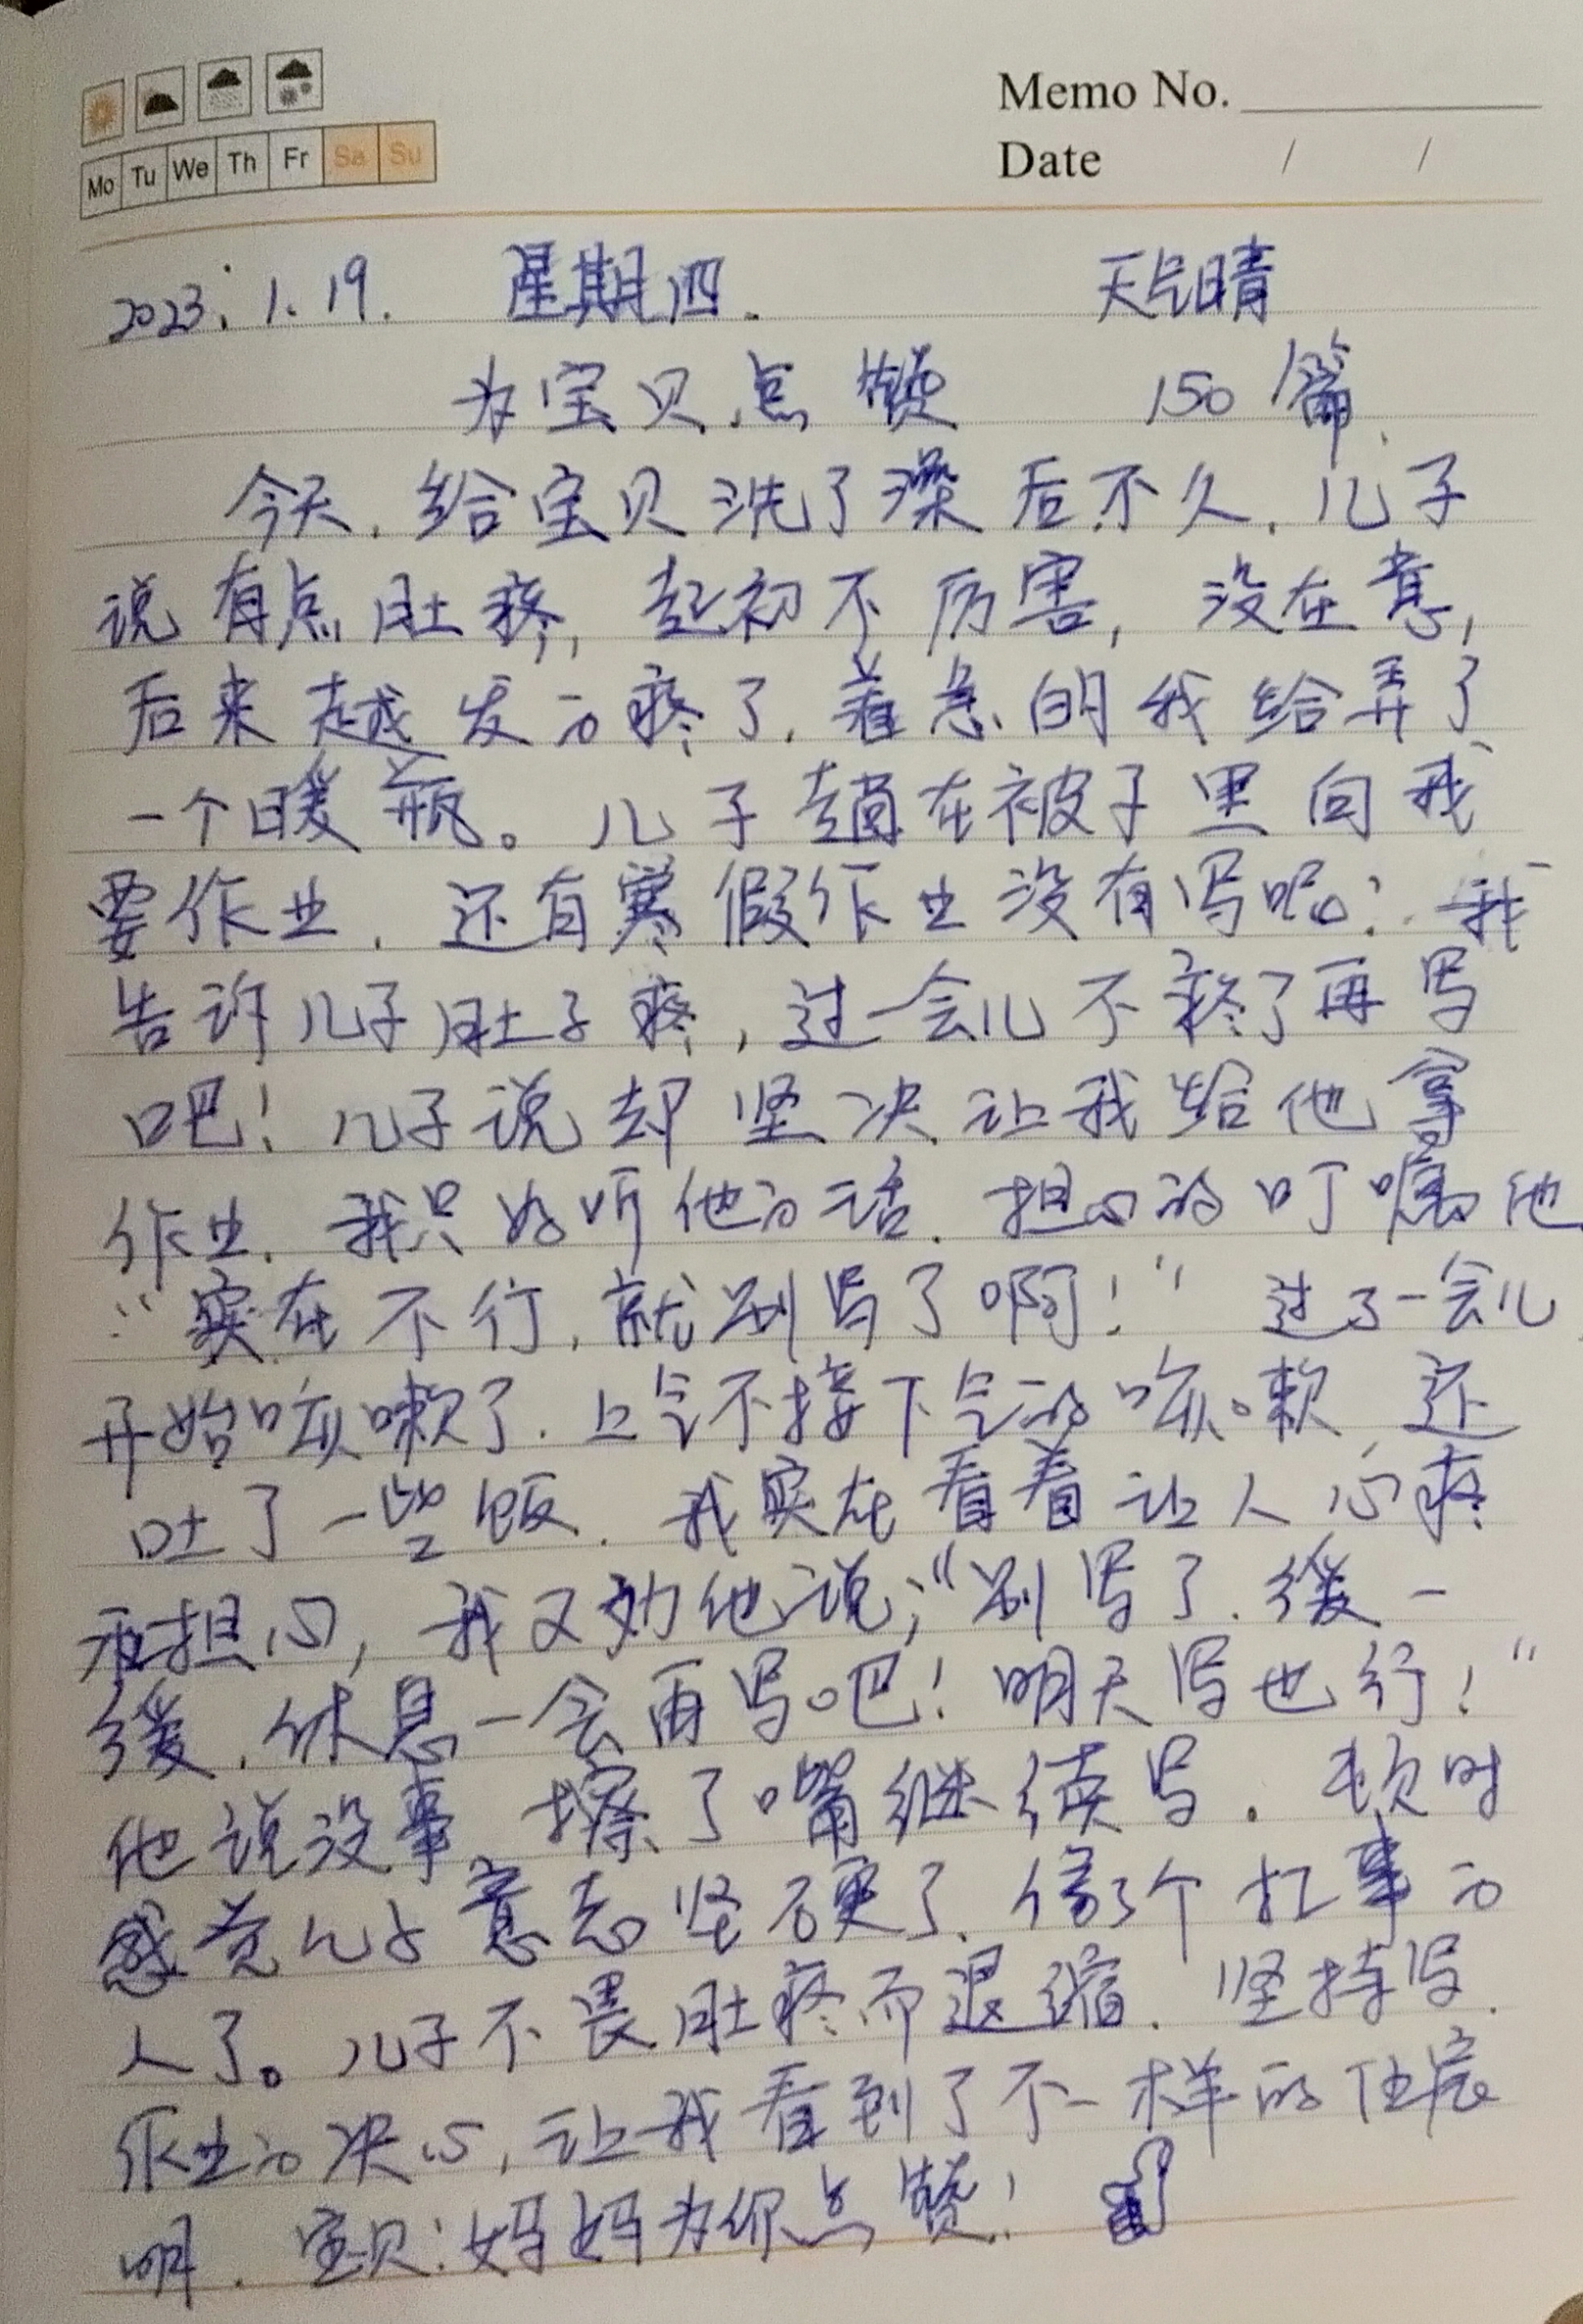 Memo No.
Mo Tu We Th Fr Sa Su
Date / /
2023.1.19. 星期四. 天气晴
为宝贝点赞 150篇.
今天,给宝贝洗了澡后不久,儿子
说有点肚疼,起初不厉害,没在意,
后来越发的疼了,着急的我给弄了
一个暖瓶。儿子躺在被子里向我
要作业,还有寒假作业没有写呢?我
告诉儿子肚子疼,过一会儿不疼了再写
吧!儿子说却坚决让我给他拿
作业,我只好听他的话.担心的叮嘱他
:“实在不行,就别写了啊!”过了一会儿
开始咳嗽了.上气不接下气的咳嗽,还
吐了一些饭.我实在看着让人心疼
和担心,我又劝他说;“别写了.缓一
缓,休息一会再写吧!明天写也行!”
他说没事,擦了嘴继续写.顿时
感觉儿子意志坚硬了.像了个扛事的
人了。儿子不畏肚疼而退缩.坚持写
作业的决心,让我看到了不一样的任宸
明.宝贝:妈妈为你点赞!